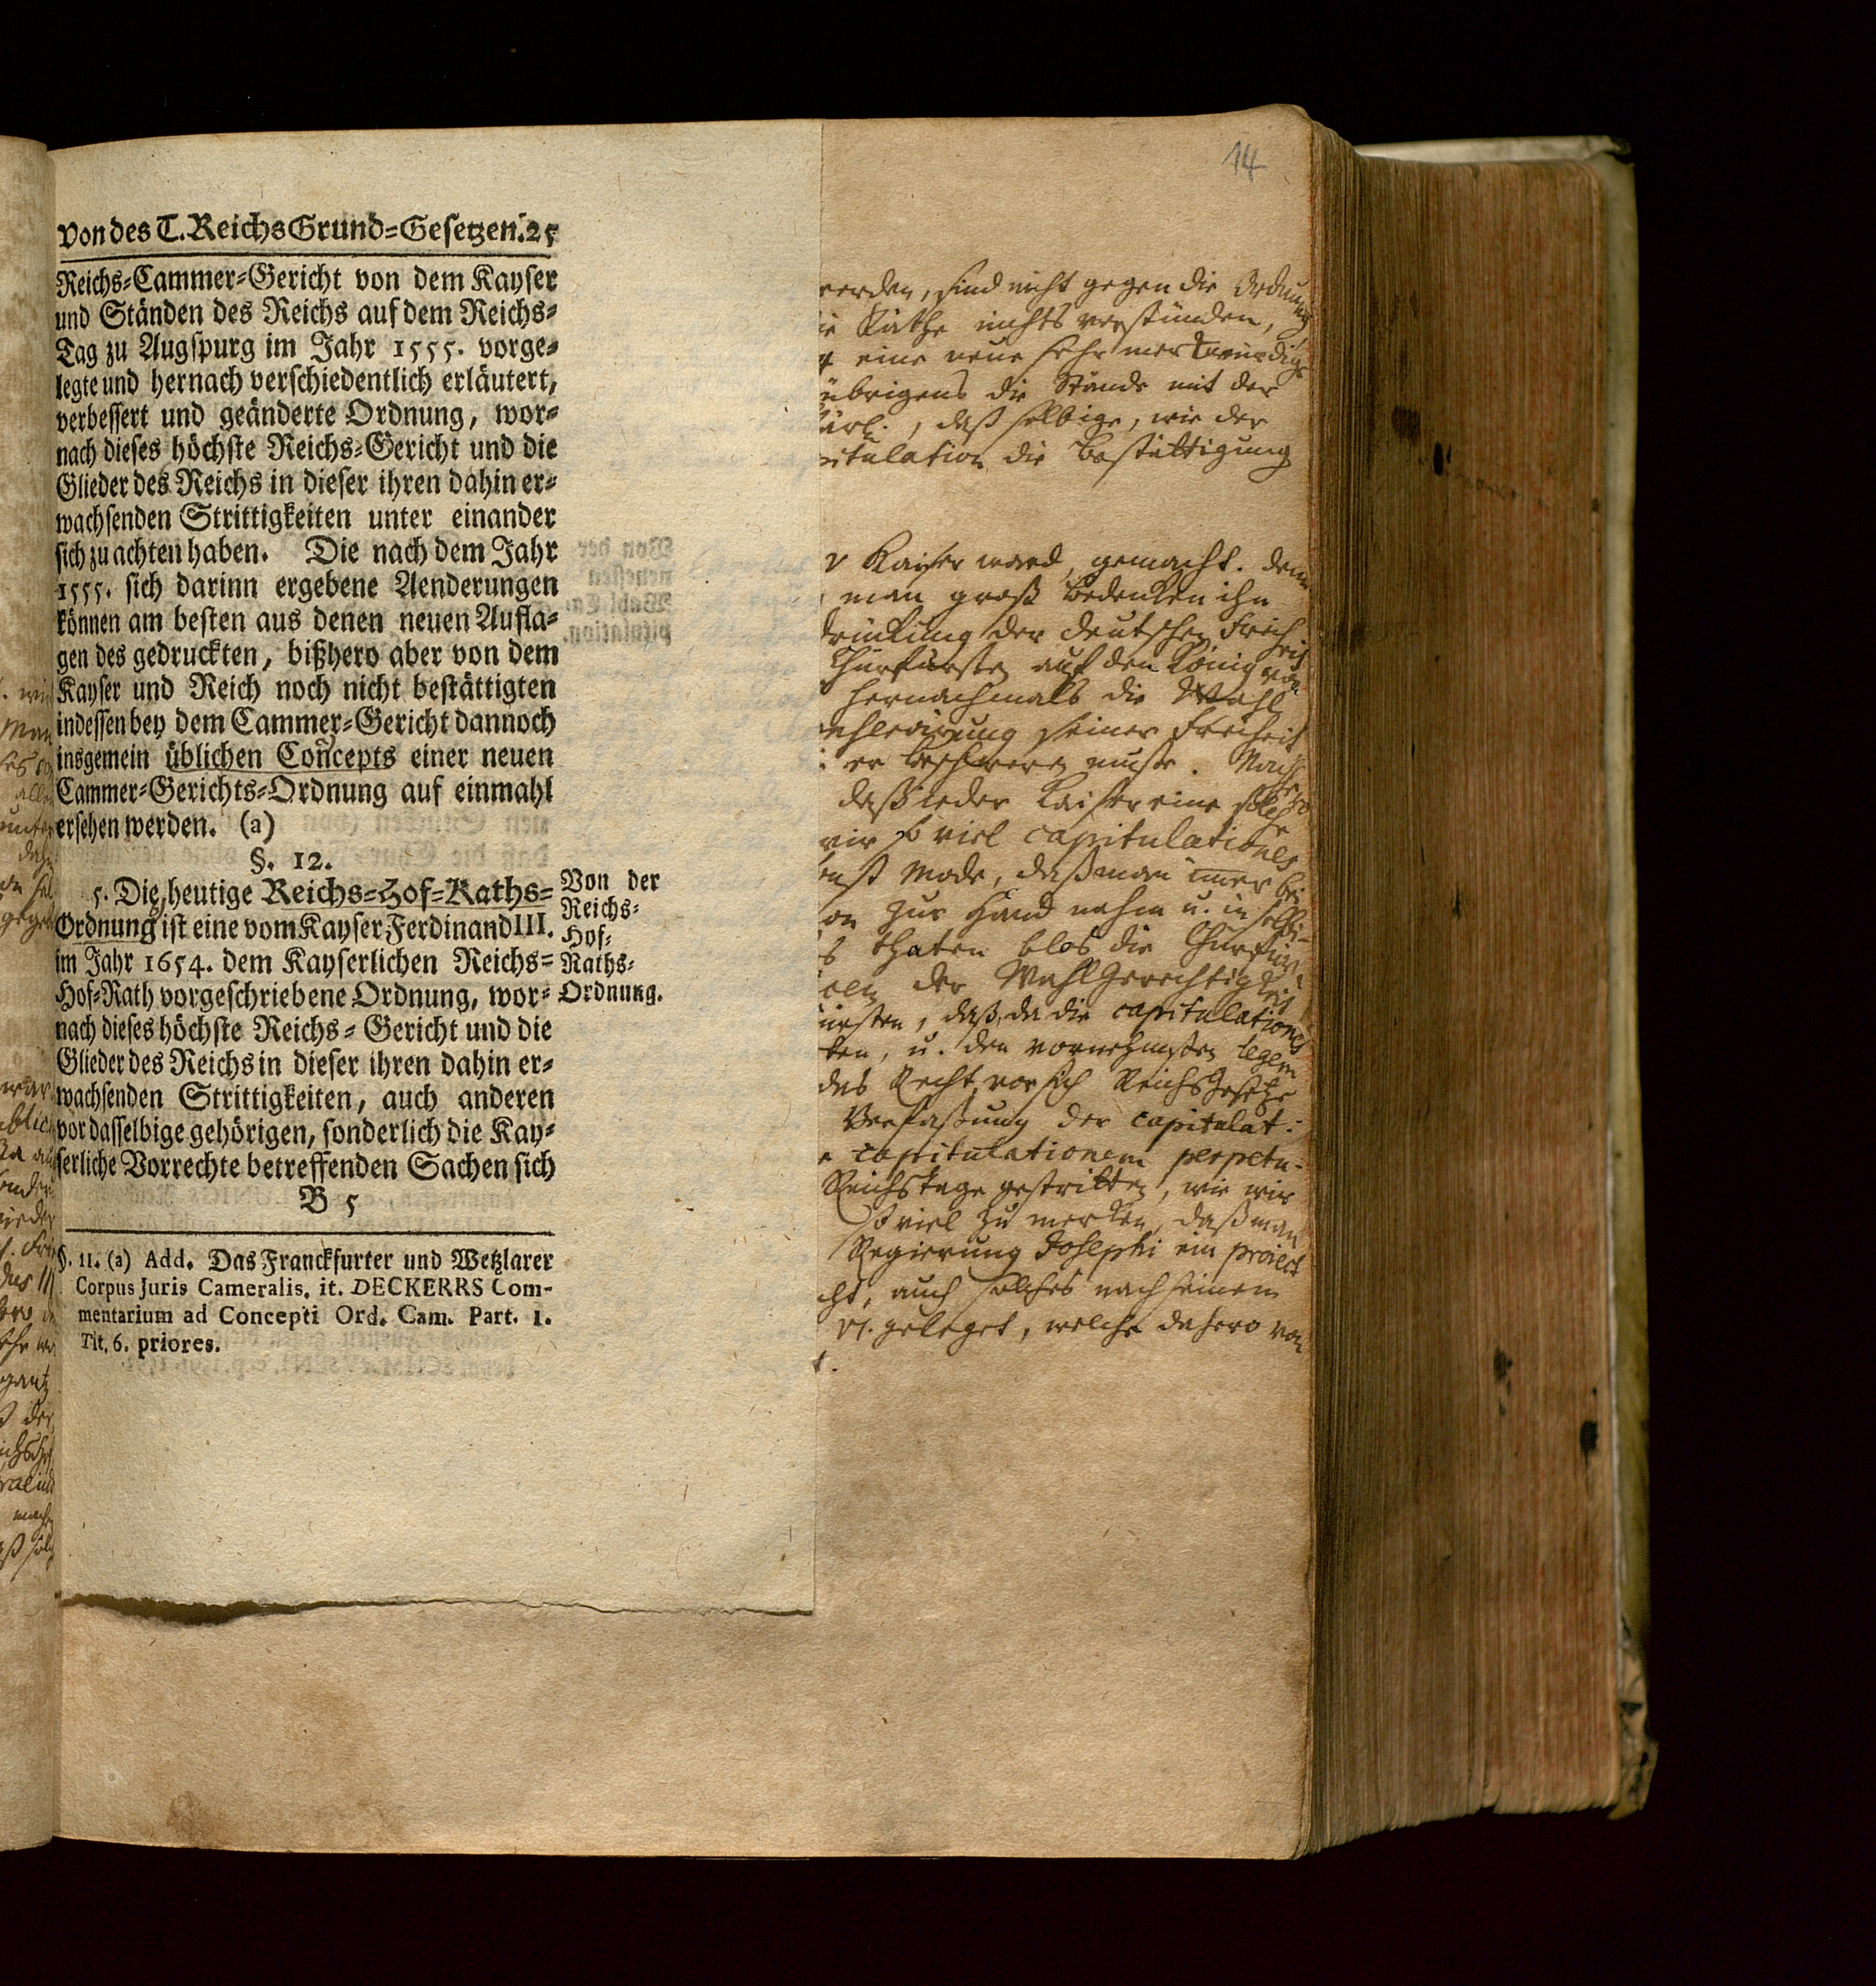 Von des T. Reichs Grund=Gesetzen. 25
Reichs=Cammer=Gericht von dem Kayser
und Ständen des Reichs auf dem Reichs=
Tag zu Augspurg im Jahr 1555. vorge=
legte und hernach verschiedentlich erläutert,
verbessert und geänderte Ordnung, wor=
nach dieses höchste Reichs=Gericht und die
Glieder des Reichs in dieser ihren dahin er=
wachsenden Strittigkeiten unter einander
sich zu achten haben. Die nach dem Jahr
1555. sich darinn ergebene Aenderungen
können am besten aus denen neuen Aufla=
gen des gedruckten, bißhero aber von dem
Kayser und Reich noch nicht bestättigten
indessen bey dem Cammer=Gericht dannoch
insgemein üblichen Concepts einer neuen
Cammer=Gerichts=Ordnung auf einmahl
ersehen werden. (a)
§. 12.
5. Die heutige Reichs=Hof=Raths=
Ordnung ist eine vom Kayser Ferdinand III.
im Jahr 1654. dem Kayserlichen Reichs=
Hof=Rath vorgeschriebene Ordnung, wor=
nach dieses höchste Reichs=Gericht und die
Glieder des Reichs in dieser ihren dahin er=
wachsenden Strittigkeiten, auch anderen
vor dasselbige gehörigen, sonderlich die Kay=
serliche Vorrechte betreffenden Sachen sich
B 5
Von der
Reichs=
Hof=
Raths=
Ordnung.
§. 11. (a) Add. Das Franckfurter und Wetzlarer
Corpus Juris Cameralis, it. DECKERRS Com-
mentarium ad Concepti Ord. Cam. Part. 1.
Tit. 6. priores.
14
werden, sind nicht gegen die Ordnung
die Räthe nichts verstünden,
eine neue sehr merkwürdige
übrigens die Stände mit der
, daß selbige, wie der
itulation die Bestättigung
Kaiser ward, gemacht. denn
man groß Bedenken ihn
drückung der deutschen Freiheit
Churfürsten auf den König von
hernachmals die Wahl
seiner Freiheit
er beschweren muste.
daß ieder Kaiser eine solche
wir so viel capitulationes
Mode, daß man imer bei
on zur Hand nahm u. in selbi-
thaten blos die Churfür-
der Wahl Gerechtigkeit
ürsten, daß, da die capitulationes
ten, u. den vornehmsten legem
das Recht vor sich Reichs Gesetze
Verfaßung der capitulat:
capitulationem perpetu-
Reichstage gestritten, wie wir
so viel zu merken, daß man
Regierung Josephi ein proiect
cht, auch solches nach seinem
VI. geleget, welche dahero von